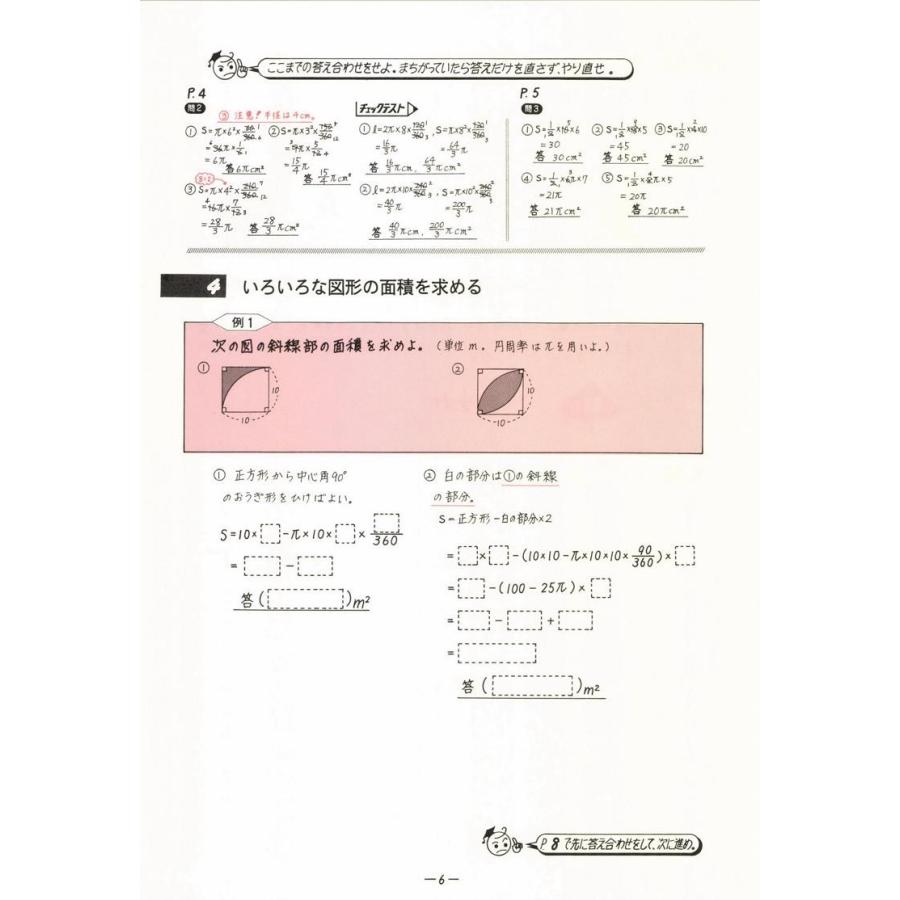 ここまでの答え合わせをせよ。まちがっていたら答えだけを直さず、やり直せ。
P.4
問2
③ 注意！半径は4cm。
① S=π×6²×60/360
=36π×1/6
=6π
答 6πcm²
② S=π×3²×150/360
=9π×5/12
=15/4π
答 15/4πcm²
8÷2
③ S=π×4²×210/360
=16π×7/12
=28/3π
答 28/3πcm²
チェックテスト
① l=2π×8×120/360, S=π×8²×120/360
=16/3π =64/3π
答 16/3πcm, 64/3πcm²
② l=2π×10×240/360, S=π×10²×240/360
=40/3π =200/3π
答 40/3πcm, 200/3πcm²
P.5
問3
① S=1/2×10×6
=30
答 30cm²
② S=1/2×18×5
=45
答 45cm²
③ S=1/2×4×10
=20
答 20cm²
④ S=1/2×6π×7
=21π
答 21πcm²
⑤ S=1/2×8π×5
=20π
答 20πcm²
4 いろいろな図形の面積を求める
例1
次の図の斜線部の面積を求めよ。(単位m. 円周率はπを用いよ。)
①
10
10
②
10
10
① 正方形から中心角90°
のおうぎ形をひけばよい。
S=10× -π×10× × /360
= -
答( )m²
② 白の部分は①の斜線
の部分。
S=正方形-白の部分×2
= × -(10×10-π×10×10×90/360)×
= -(100-25π)×
= - +
=
答( )m²
P8で先に答え合わせをして、次に進め。
—6—